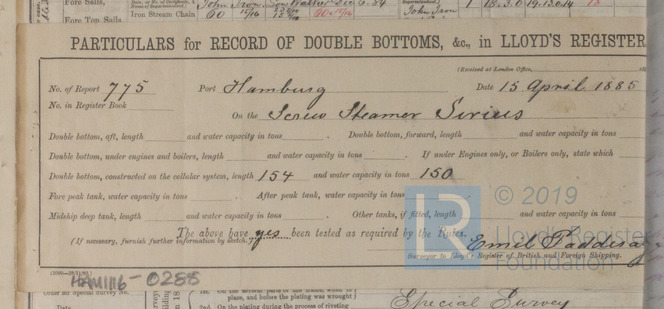 Fore Sails,
Fore Top Sails
Iron Stream Chain 60 15/16
John Iron
PARTICULARS for RECORD OF DOUBLE BOTTOMS, &c., in LLOYD'S REGISTER
(Received at London Office,
No. of Report 775 Port Hamburg Date 15 April 1885
No. in Register Book
On the Screw Steamer Sirius
Double bottom, aft, length and water capacity in tons . Double bottom, forward, length and water capacity in tons
Double bottom, under engines and boilers, length and water capacity in tons . If under Engines only, or Boilers only, state which
Double bottom, constructed on the cellular system, length 154 and water capacity in tons 150
Fore peak tank, water capacity in tons . After peak tank, water capacity in tons
Midship deep tank, length and water capacity in tons . Other tanks, if fitted, length and water capacity in tons
The above have yes been tested as required by the Rules.
(If necessary, furnish further information by sketch.)
Emil Padderatz
Surveyor to Lloyd's Register of British and Foreign Shipping.
HAM1116-0288
© 2019
Lloyd's Register
Foundation
place, and before the plating was wrought)
2nd. On the plating during the process of riveting
Special Survey
Date